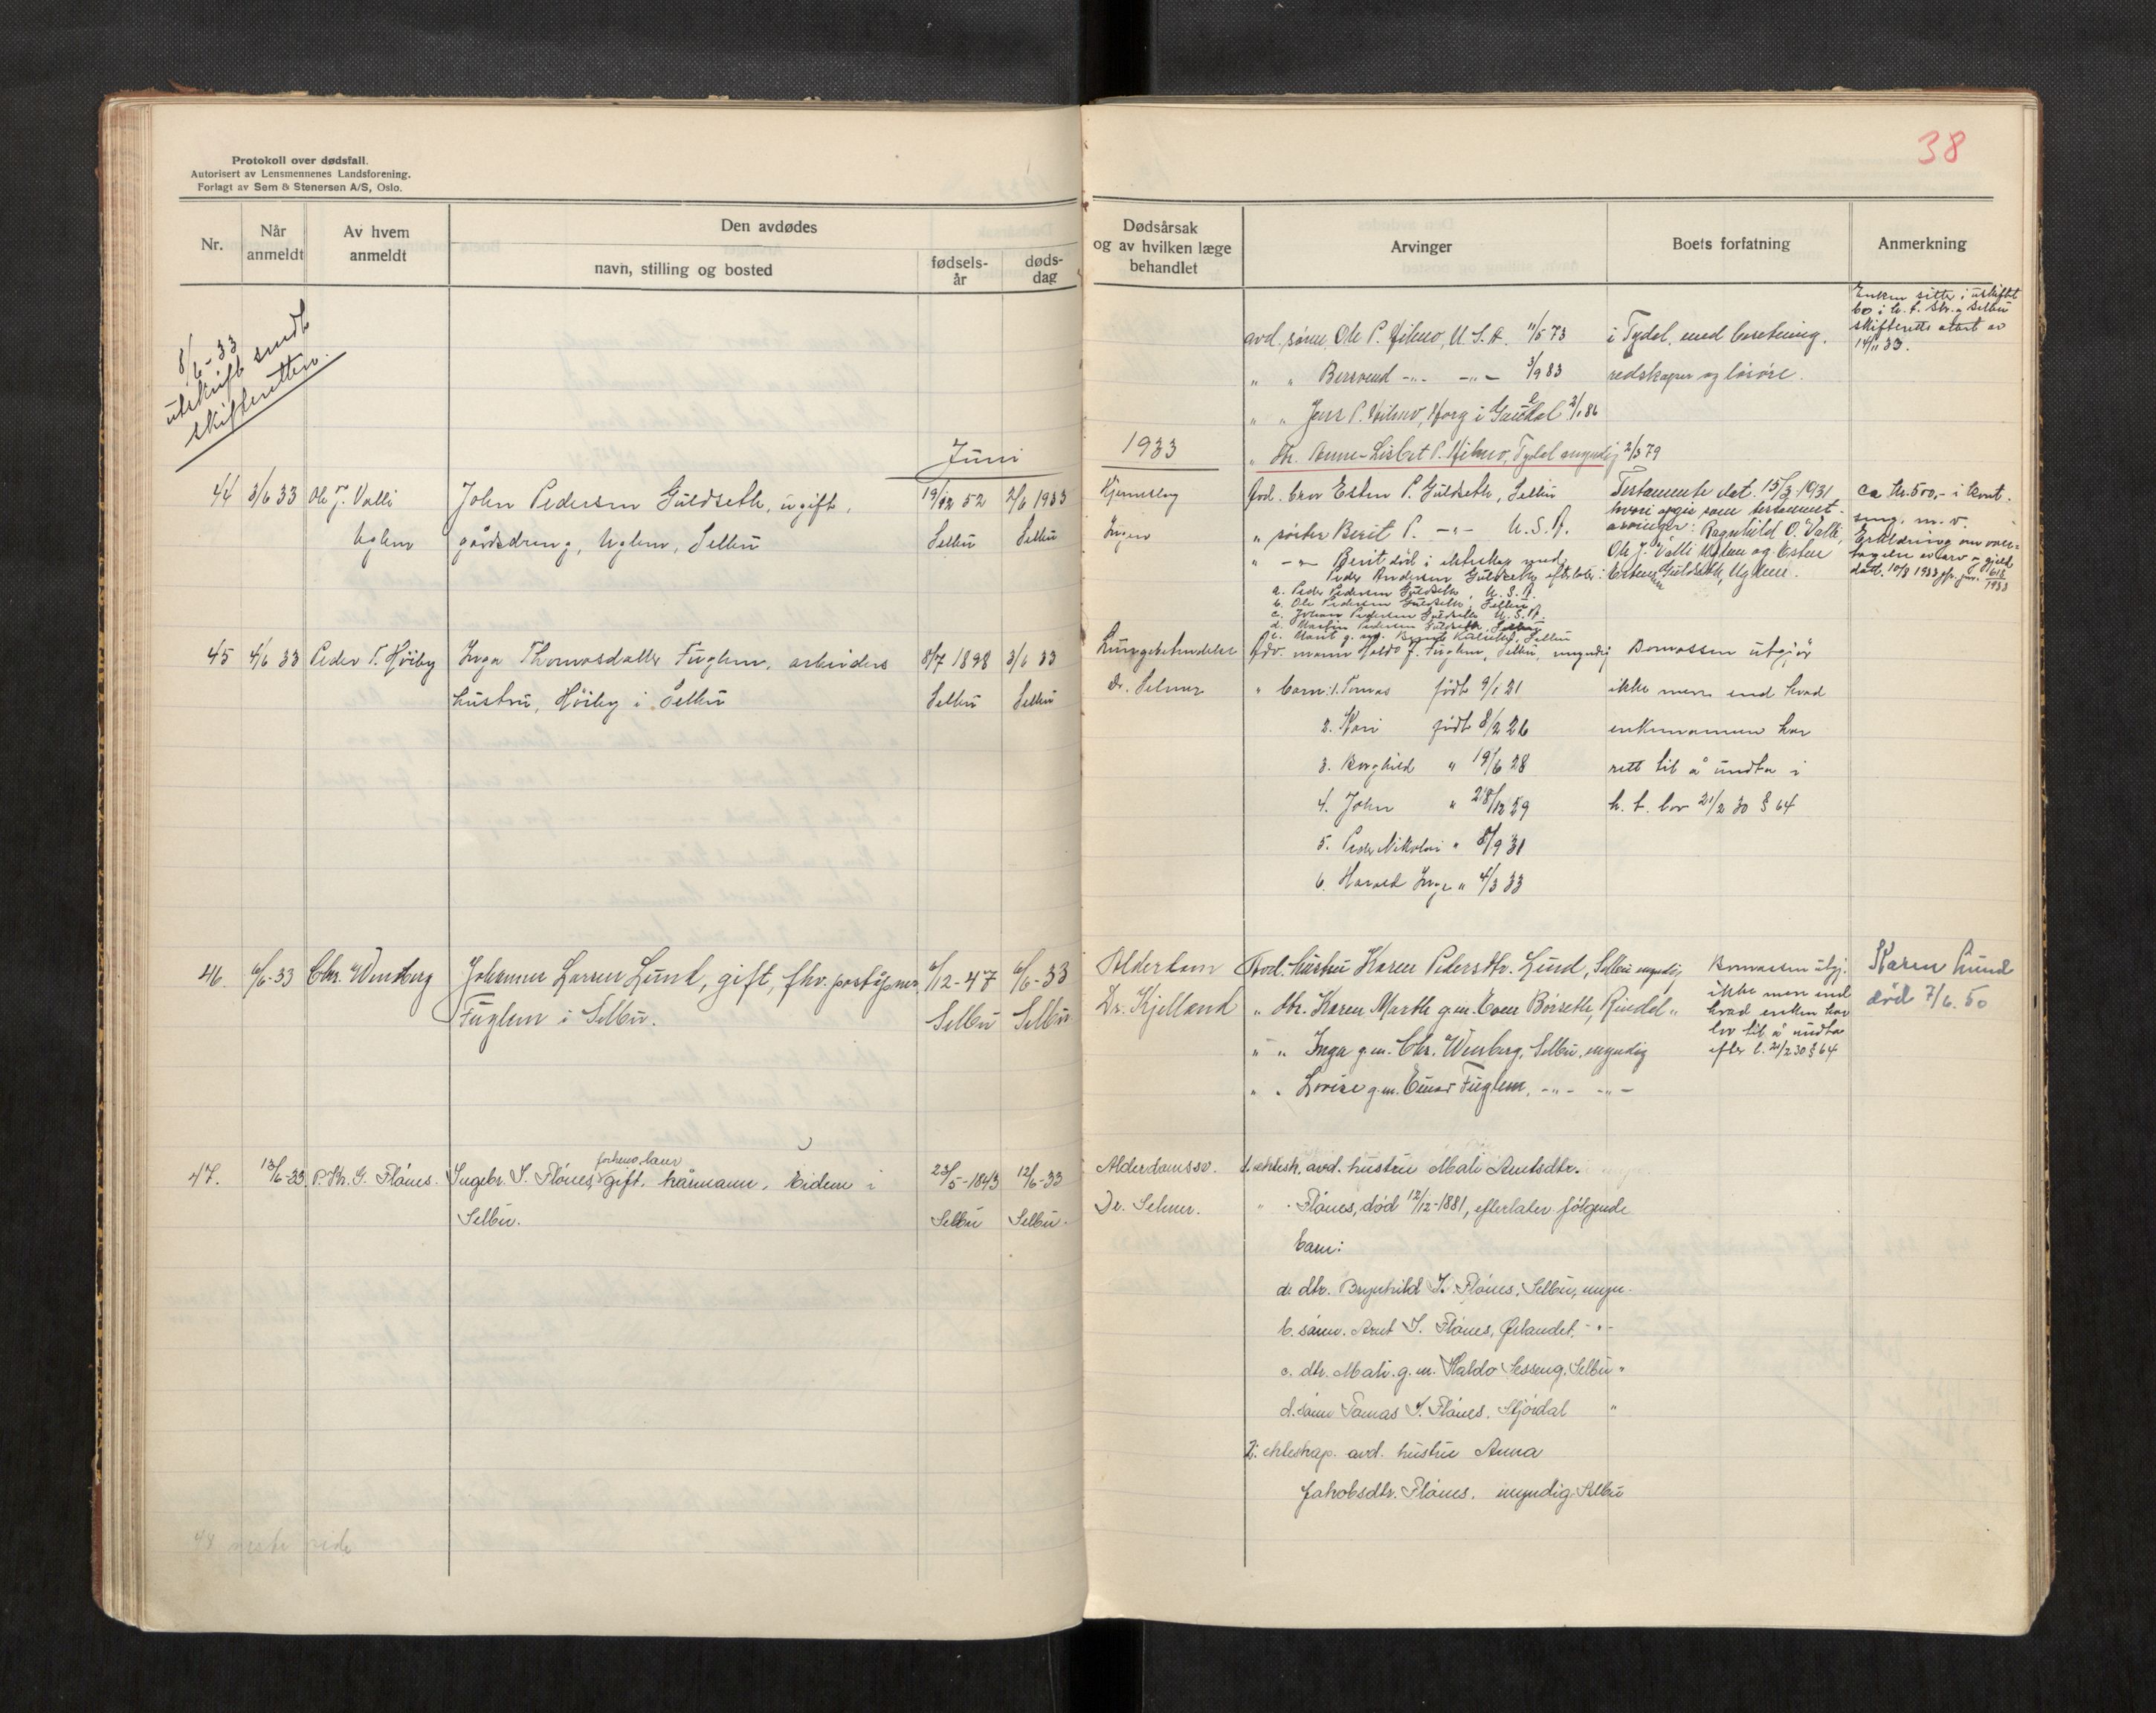 38
Protokoll over dødsfall.
Autorisert av Lensmennenes Landsforening.
Forlagt av Sem & Stenersen A/S, Oslo.
Nr.
Når anmeldt
Av hvem anmeldt
Den avdødes
navn, stilling og bosted
fødsels-
år
døds-
dag
Dødsårsak
og av hvilken læge
behandlet
Arvinger
Boets forfatning
Anmerkning
8/6-33
utskrift sendt
skifteretten.
avd. sønn, Ole P. Hilmo, U.S.A. 11/5 73
i Tydal, med besetning,
Enken sitter i uskiftet
bo i h. t. Str. & Selbu
skifteretts attest av
14/11 33.
" " Bersvend -"- -"- 3/9 83
redskaper og løsøre.
" " Jens P. Hilmo, Horg i Gauldal 2/1 86
" dtr. Anne-Lisbet P. Hilmo, Tydal myndig 2/3 79
Juni
1933
44 3/6 33 Ole J. Valli
Uglem
John Pedersen Guldseth, ugift,
gårdsdreng, Uglem, Selbu
19/12 52 2/6 1933
Selbu Selbu
Hjerneslag
Ingen
Avd. bror Esten P. Guldseth, Selbu
" søster Berit P. -"- U.S.A.
" -"- Berit død i ekteskap med
Peder Andersen Guldseth efterlater:
a. Peder Pedersen Guldseth, U.S.A.
b. Ole Pedersen Guldseth, Selbu
c. Johan Pedersen Guldseth U.S.A
d. Martin Pedersen Guldseth, Selbu
e. Marit g. m. Kulseth, Selbu
Testamente dat. 15/3 1931
hvori opgis som testament-
arvinger: Ragnhild O. Valli,
Ole J. Valli Uglem og Esten
Estensen Guldseth, Uglem.
ca kr. 500,- i kont.
seng. m. v.
Erklæring om over-
tagelse av arv og gjeld
datt. 10/8 1933 jfr. jnr. 618/1933
45 4/6 33 Peder T. Høiby
Inga Thomasdatter Fuglem, arbeiders
hustru, Høiby i Selbu
8/7 1898 3/6 33
Selbu Selbu
Lungebetendelse
Dr. Selmer
Adv. mann Haldo J. Fuglem, Selbu, myndig
" barn: 1. Tomas født 9/1 21
2. Kari født 8/2 26
3. Borghild " 19/6 28
4. John " 28/12 29
5. Peder Nikolai " 8/9 31
6. Harald Inge " 4/3 33
Bomassen utgjør
ikke mere end hvad
enkemannen har
rett til å undta i
h. t. lov 21/2 30 § 64
46. 6/6-33 Chr. Wensberg
Johannes Larsen Lund, gift, fhv. poståpner,
Fuglem i Selbu.
6/12-47 6/6-33
Selbu Selbu
Alderdom
Dr. Kjelland
Avd. hustru Karen Pedersdtr. Lund, Selbu myndig
" dtr. Karen Marth g.m. Even Børseth, Rindal "
" " Inga g.m. Chr. Wensberg, Selbu, myndig
" " Lovise g.m. Einar Fuglem, -"- -"-
Bomassen utgj.
ikke mer end
hvad enken har
lov til å undta
efter l. 21/2 30 § 64
Karen Lund
død 7/6. 50
47. 13/6-33 P. Kr. G. Flånes.
Ingebr. T. Flånes, gift, kårmann, Eidem i
Selbu.
23/5-1843 12/6-33
Selbu Selbu.
Alderdomssv.
Dr. Selmer.
1. ektesk. avd. hustru Mali Arntsdtr.
" Flånes, død 12/12-1881, efterlater følgende
barn:
a. dtr. Brynhild I. Flånes, Selbu, myn.
b. sønn. Arnt I. Flånes, Ørlandet, -"-
c. dtr. Mali. g. m. Haldo Sesseng, Selbu "
d. sønn Tomas I. Flånes, Stjørdal "
2. ekteskap. avd. hustru Anna
Jakobsdtr. Flånes, myndig Selbu
48 neste side